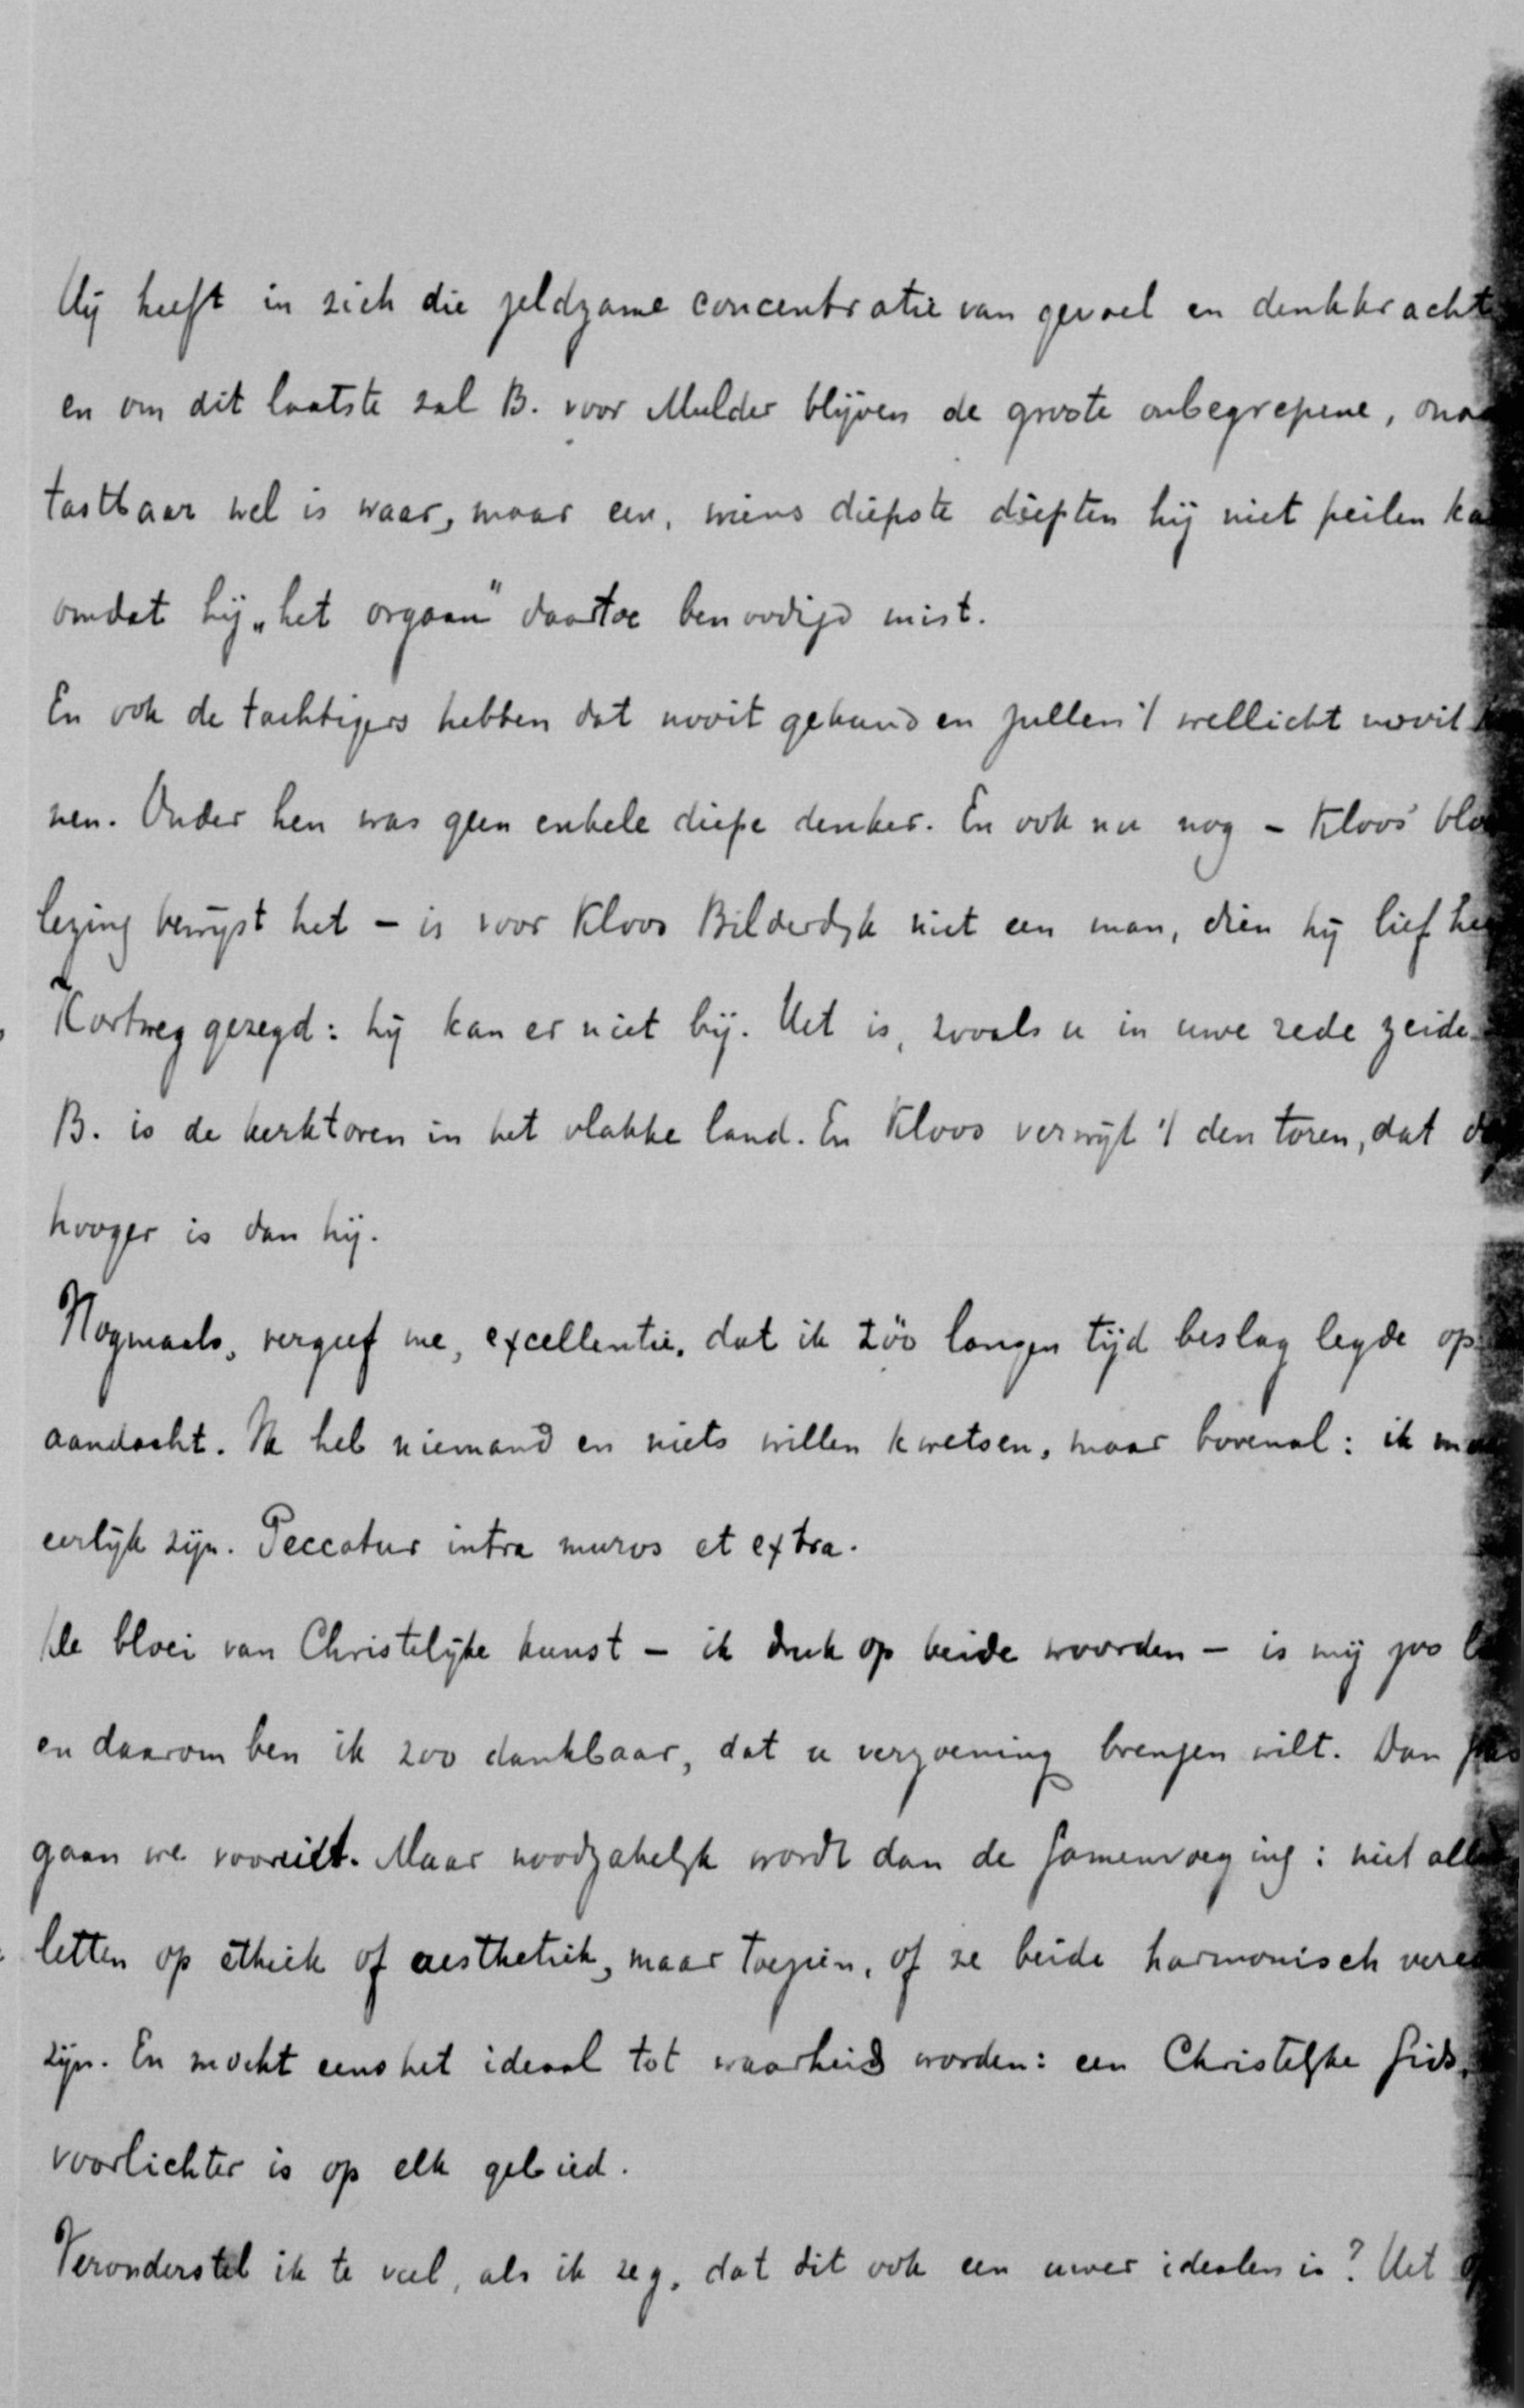 Hij heeft in zich die zeldzame concentratie van gevoel en denkkracht
en om dit laatste zal B. voor Mulder blijven de groote onbegrepene, onaan
tastbaar wel is waar, maar een, wiens diepste diepten hij niet peilen ka
omdat hij „het orgaan" daartoe benoodigd mist.
En ook de tachtigers hebben dat nooit gekund en zullen 't wellicht nooit
nen. Onder hen was geen enkele diepe denker. En ook nu nog - Kloos' blo
lezing bewijst het - is voor Kloos Bilderdijk niet een man, dien hij lief hee
Kortweg gezegd: hij kan er niet bij. Het is, zooals u in uwe rede zeide
B. is de kerktoren in het vlakke land. En Kloos verwijt 't den toren, dat
hooger is dan hij.
Nogmaals, vergeef me, excellentie, dat ik zóó langen tijd beslag legde op
aandacht. Ik heb niemand en niets willen kwetsen, maar bovenal: ik
eerlijk zijn. Peccatur intra muros et extra.
De bloei van Christelijke kunst - ik druk op beide woorden - is mij zoo
en daarom ben ik zoo dankbaar, dat u verzoening brengen wilt. Dan
gaan we vooruit. Maar noodzakelijk wordt dan de samenvoeging: niet all
letten op ethiek of aesthetiek, maar toezien, of ze beide harmonisch vere
zijn. En mocht eens het ideaal tot waarheid worden: een Christelijke Gids,
voorlichter is op elk gebied.
Veronderstel ik te veel, als ik zeg, dat dit ook een uwer idealen is? Het